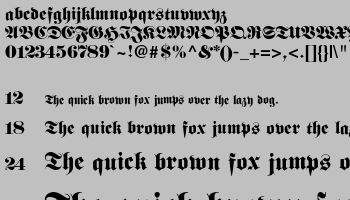 abcdefghijklmnopqrstuvwxyz
ABCDEFGHIJKLMNOPQRSTUVWXY
0123456789`~!@#$%^&*()-_+=>,<.[]{}|\"
12 The quick brown fox jumps over the lazy dog.
18 The quick brown fox jumps over the la
24 The quick brown fox jumps o